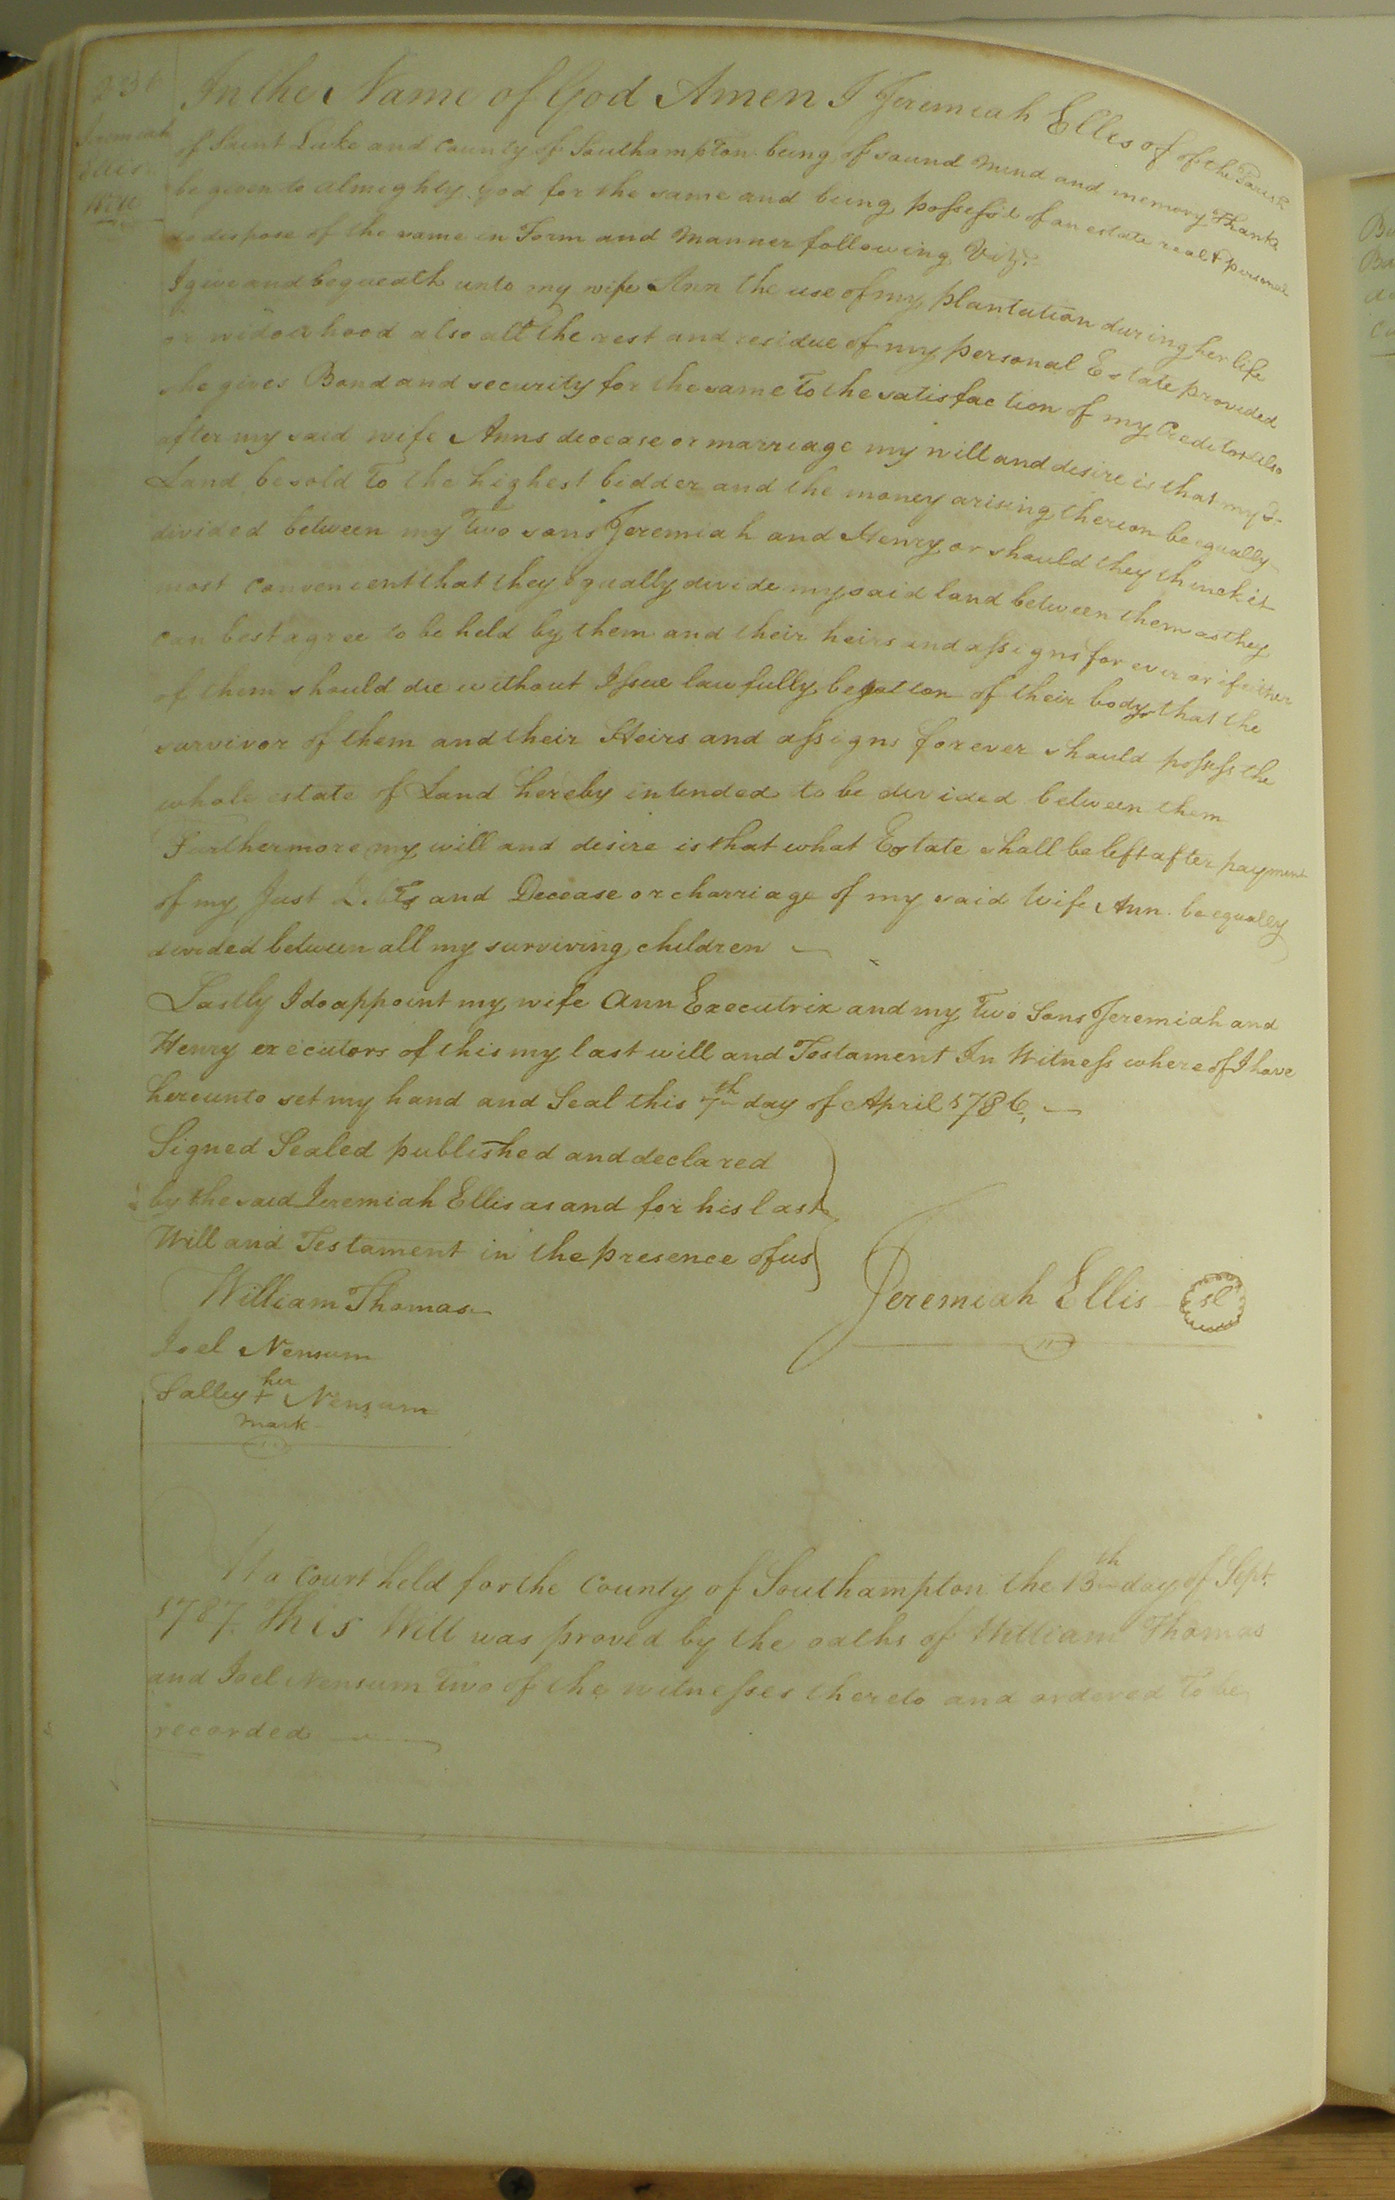 236
Jeremiah
Ellis
Will
In the Name of God Amen I Jeremiah Ellis of of the Parish
of Saint Luke and County of Southampton being of sound mind and memory Thanks
be given to Almighty god for the same and being possess'd of an estate real & personal
do dispose of the same in Form and Manner following Vizt.
I give and bequeath unto my wife Ann the use of my plantation during her life
or widowhood also all the rest and residue of my personal Estate provided
she gives Bond and security for the same To the satisfaction of my Creditors also
after my said wife Anns decease or marriage my will and desire is that my Sd.
Land be sold To the highest bidder and the money arising thereon be equally
divided between my Two sons Jeremiah and Henry or should they think it
most convenient that they equally divide my said land between them as they
can best agree to be held by them and their heirs and assigns for ever or if either
of them should die without Issue lawfully begotton of their bodys that the
survivor of them and their Heirs and assigns forever should possess the
whole estate of Land hereby intended to be divided between them
Furthermore my will and desire is that what Estate shall be left after payment
of my Just Debts and Decease or charriage of my said Wife Ann be equally
divided between all my surviving children
Lastly I do appoint my wife Ann Executrix and my Two Sons Jeremiah and
Henry executors of this my last will and Testament In Witness where of I have
hereunto set my hand and Seal this 7th day of April 1786
Signed Sealed published and declared
by the said Jeremiah Ellis as and for his last
Will and Testament in the presence of us
William Thomas
Jeremiah Ellis sl
Joel Nensum
her
Salley + Nensum
mark
At a Court held for the County of Southampton the 13th day of Sept.
1787 This Will was proved by the oaths of William Thomas
and Joel Nensum Two of the witnesses thereto and ordered To be
recorded